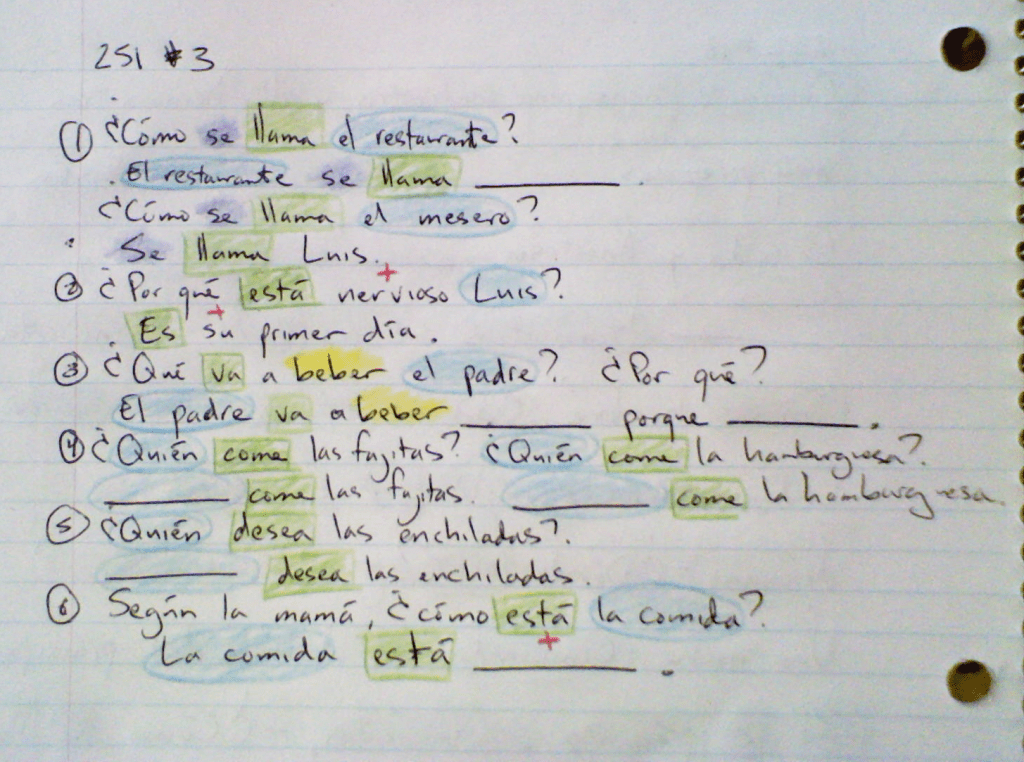 251 #3
① ¿Cómo se llama el restaurante?
El restaurante se llama ________.
¿Cómo se llama el mesero?
Se llama Luis.
② ¿Por qué está nervioso Luis?
Es su primer día.
③ ¿Qué va a beber el padre? ¿Por qué?
El padre va a beber ________ porque ________.
④ ¿Quién come las fajitas? ¿Quién come la hamburguesa?
________ come las fajitas. ________ come la hamburguesa.
⑤ ¿Quién desea las enchiladas?
________ desea las enchiladas.
⑥ Según la mamá, ¿cómo está la comida?
La comida está ________.